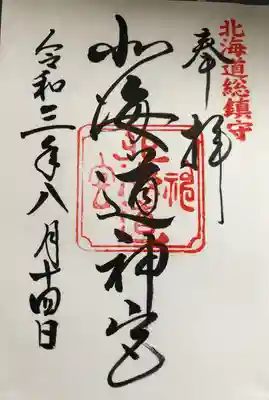 北海道総鎮守
奉拝
北海道神宮
令和三年八月十四日